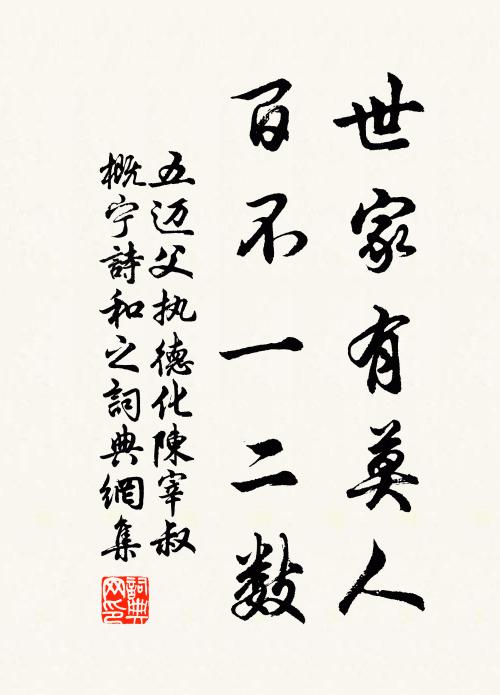 世家有莫人
百不一二数
五迈父执德化陳宰叔
概宁詩和之詞典網集
詞典
网印